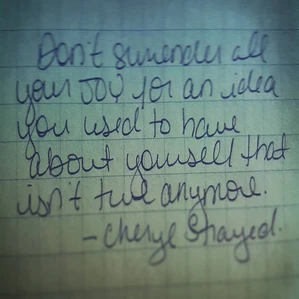 Don't surrender all
your JOY for an idea
you used to have
about yourself that
isn't true anymore.
- Cheryl Strayed.